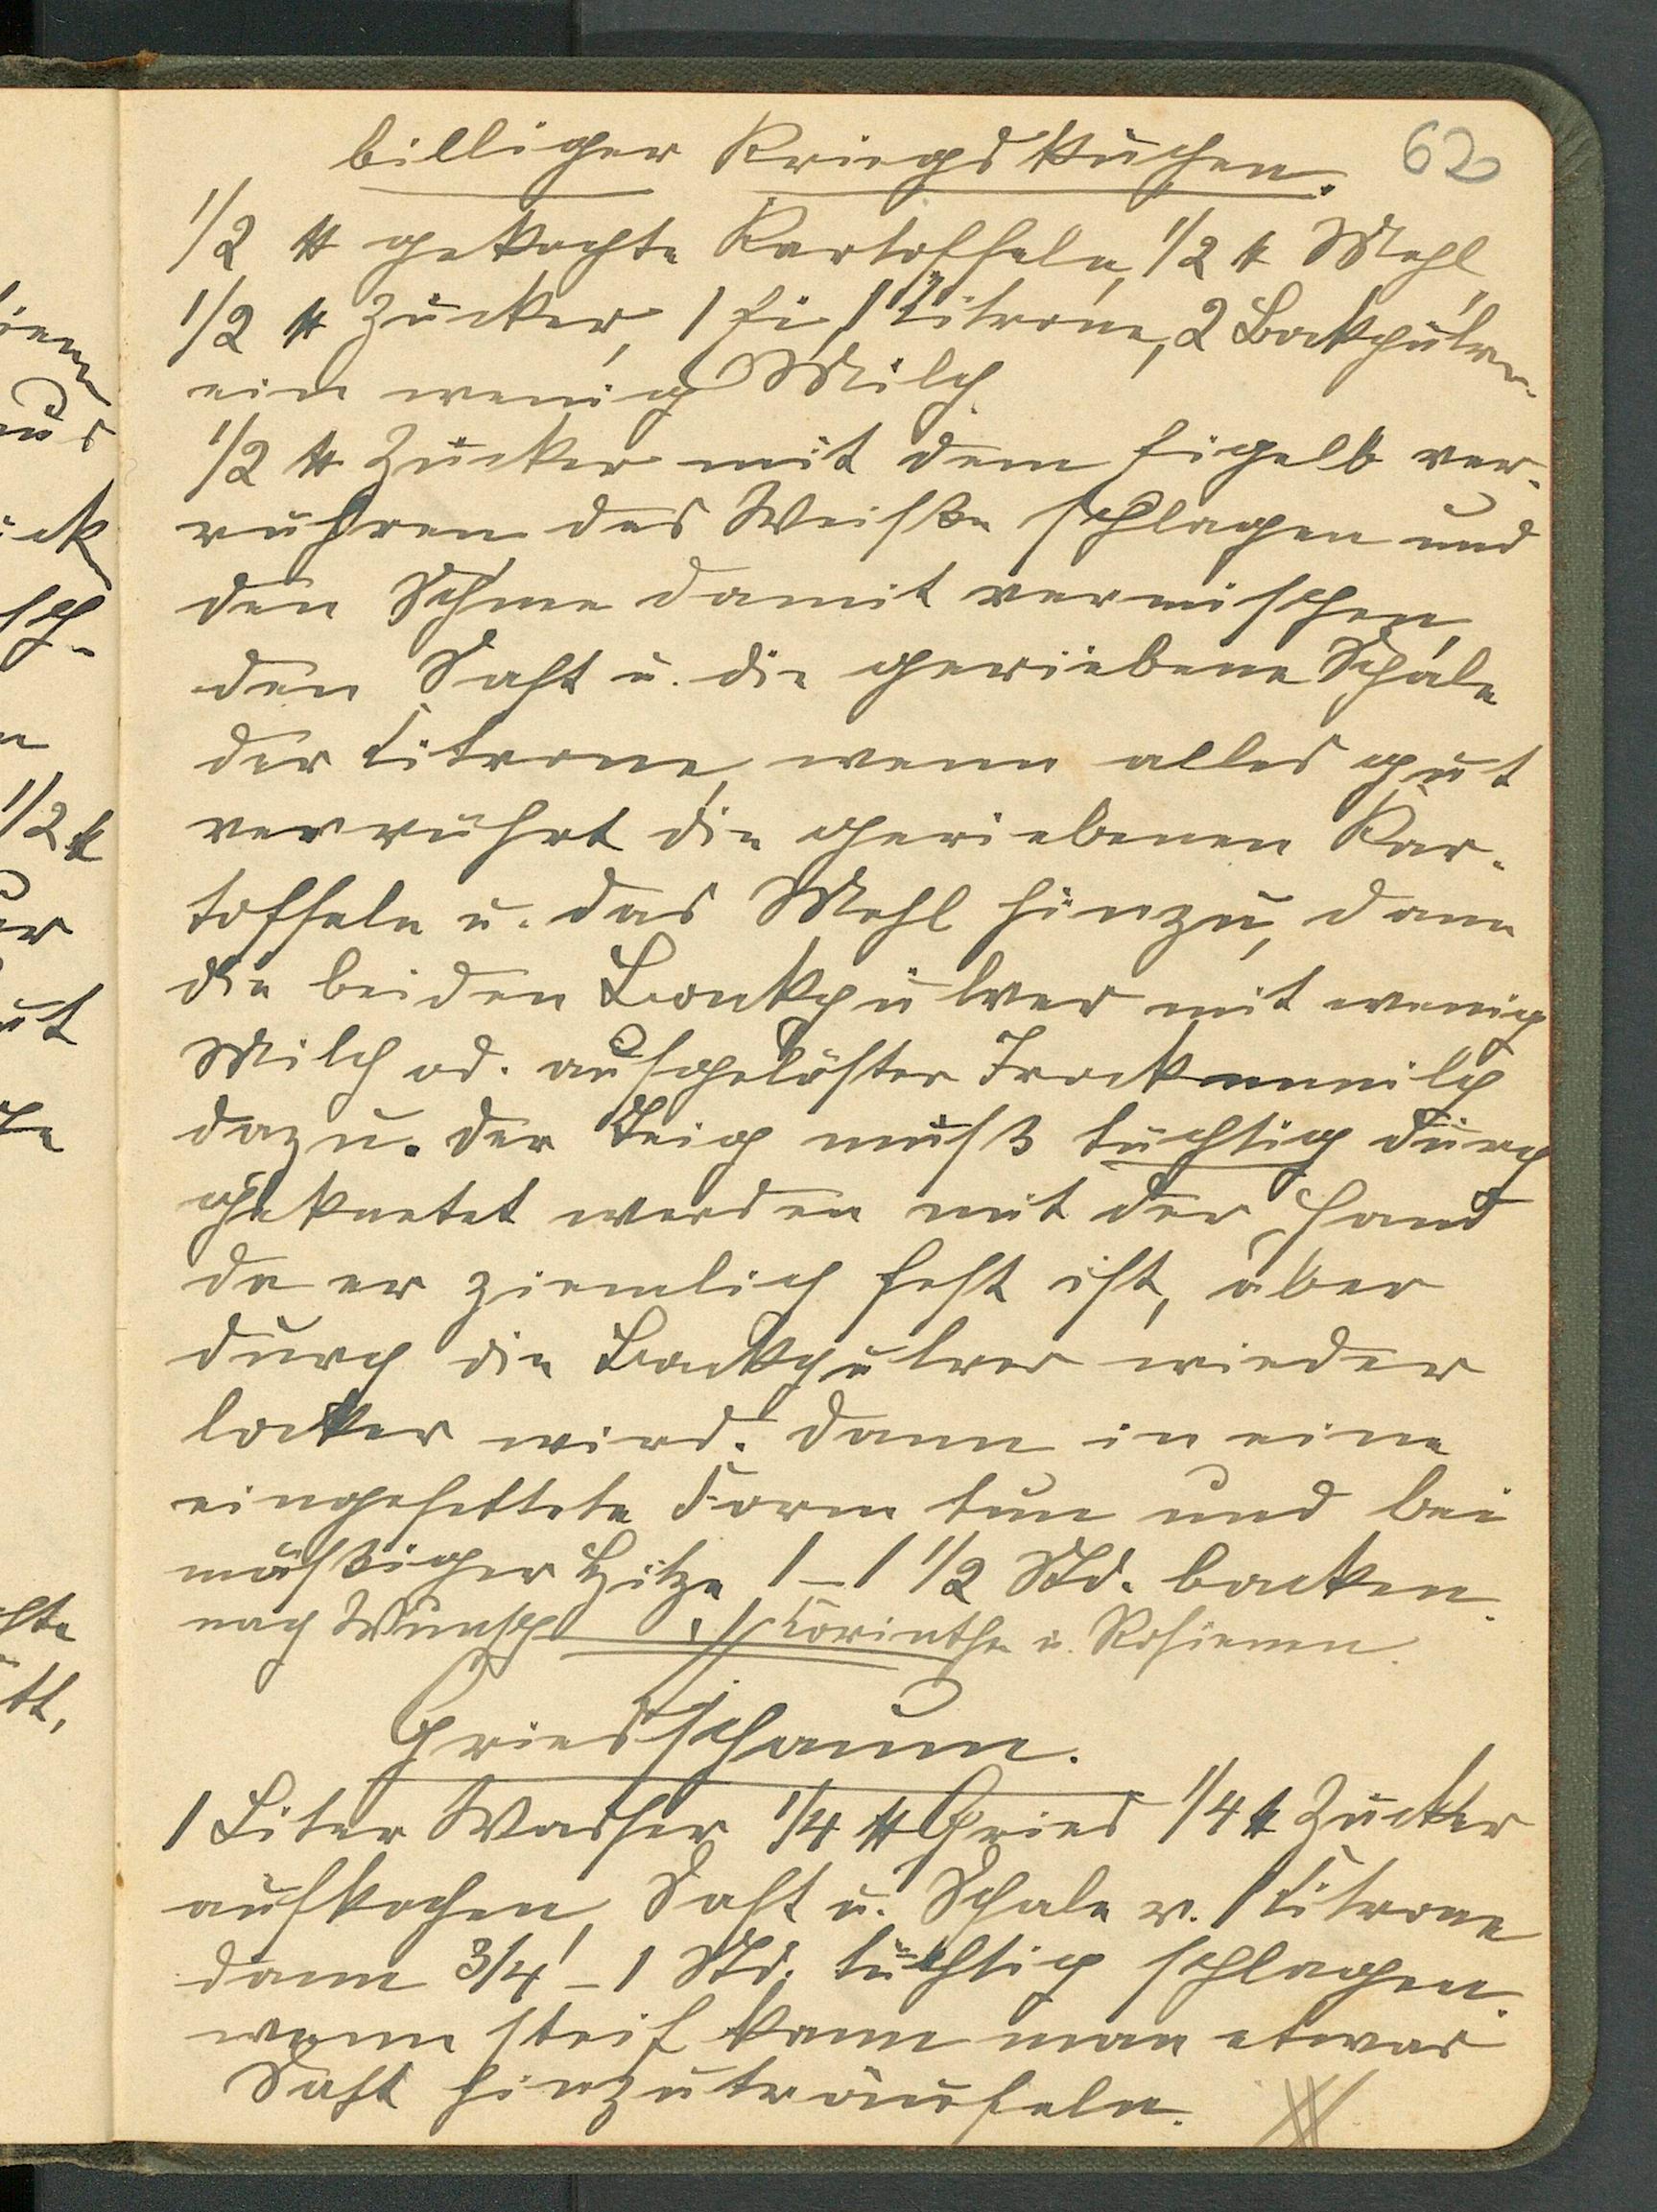 billiger Kriegskuchen.
62
1/2 ℔ gekochte Kartoffeln, 1/2 ℔ Mehl,
1/2 ℔ Zucker, 1 Ei, 1 Citrone, 2 Backpulver
ein wenig Milch.
1/2 ℔ Zucker mit dem Eigelb ver-
rühren das Weiße schlagen und
den Schnee damit vermischen,
den Saft u. die geriebene Schale
der Citrone, wenn alles gut
verrührt die geriebenen Kar-
toffeln u. das Mehl hinzu, dann
die beiden Backpulver mit wenig
Milch od. aufgelöster Trockenmilch
dazu. Der Teig muß tüchtig durch
geknetet werden mit der Hand
da er ziemlich fest ist, aber
durch die Backpulver wieder
locker wird. Dann in eine
eingefettete Form tun und bei
mäßiger Hitze 1 – 1 1/2 Std. backen.
nach Wunsch Corinthe u. Rosienen.
Griesschaum.
1 Liter Wasser 1/4 ℔ Gries 1/4 ℔ Zucker
aufkochen, Saft u. Schale v. 1 Citrone
dann 3/4 – 1 Std. tüchtig schlagen.
wenn steif kann man etwas
Saft hinzuträufeln.